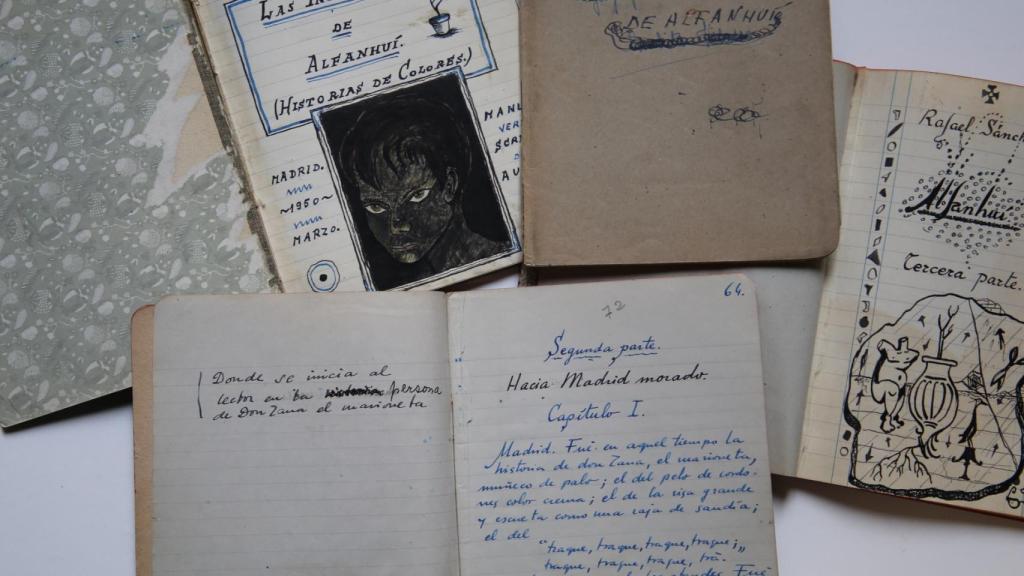 LAS
DE
ALFANHUÍ.
(HISTORIAS DE COLORES.)
MADRID.
~1950~
MARZO.
DE ALFANHUÍ
Rafael Sánch
Alfanhuí.
Tercera parte.
Donde se inicia al
lector en la persona
de Don Zana el marioneta
64.
72
Segunda parte.
Hacia Madrid morado.
Capítulo I.
Madrid. Fué en aquel tiempo la
historia de don Zana, el marioneta,
muñeco de palo; el del pelo de cordo-
nes color crema; el de la risa grande
y escueta como una raja de sandía;
el del
"traque, traque, traque, traque;,,
traque, traque, traque, tra.
Fué